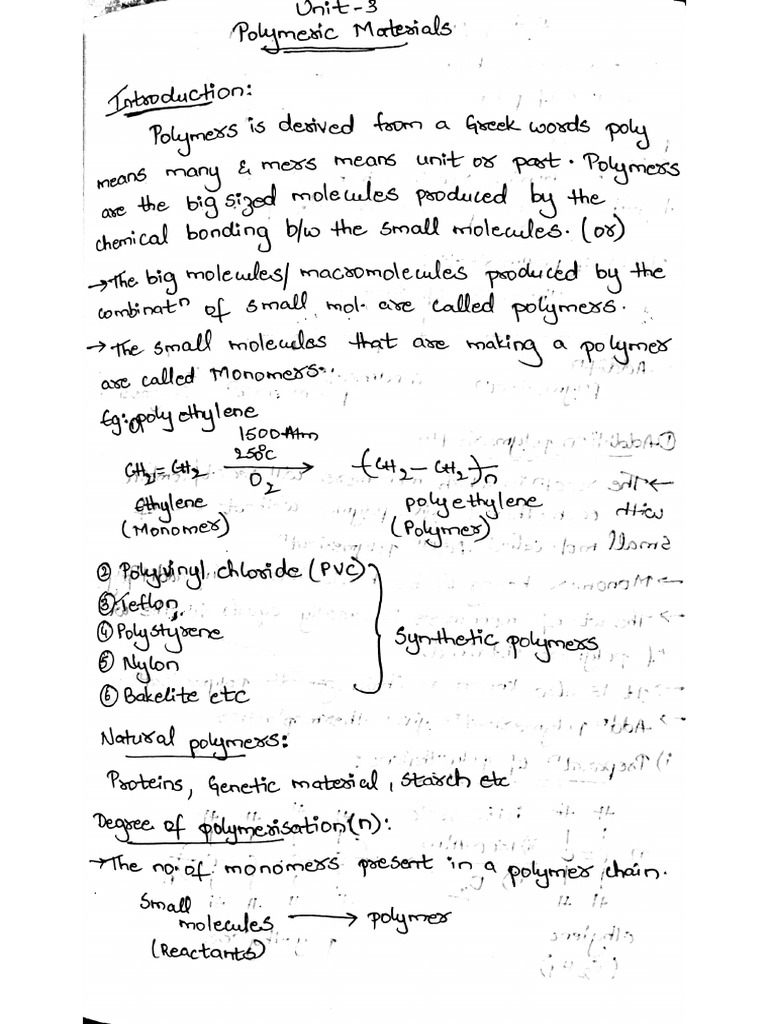 Unit-3
Polymeric Materials
Introduction:
Polymers is derived from a Greek words poly
means many & mers means unit or part. Polymers
are the big sized molecules produced by the
chemical bonding b/w the small molecules. (or)
→ The big molecules/macromolecules produced by the
combinatⁿ of small mol. are called polymers.
→ The small molecules that are making a polymer
are called Monomers.
Eg: ① polyethylene
1500 Atm
250°c
CH₂=CH₂ ⟶ (CH₂-CH₂)n
O₂
Ethylene polyethylene
(Monomer) (Polymer)
② Polyvinyl chloride (PVC)
③ Teflon
④ Polystyrene
⑤ Nylon
⑥ Bakelite etc
Synthetic polymers
Natural polymers:
Proteins, Genetic material, starch etc
Degree of polymerisation(n):
→ The no. of monomers present in a polymer chain.
Small
molecules ⟶ polymer
(Reactants)